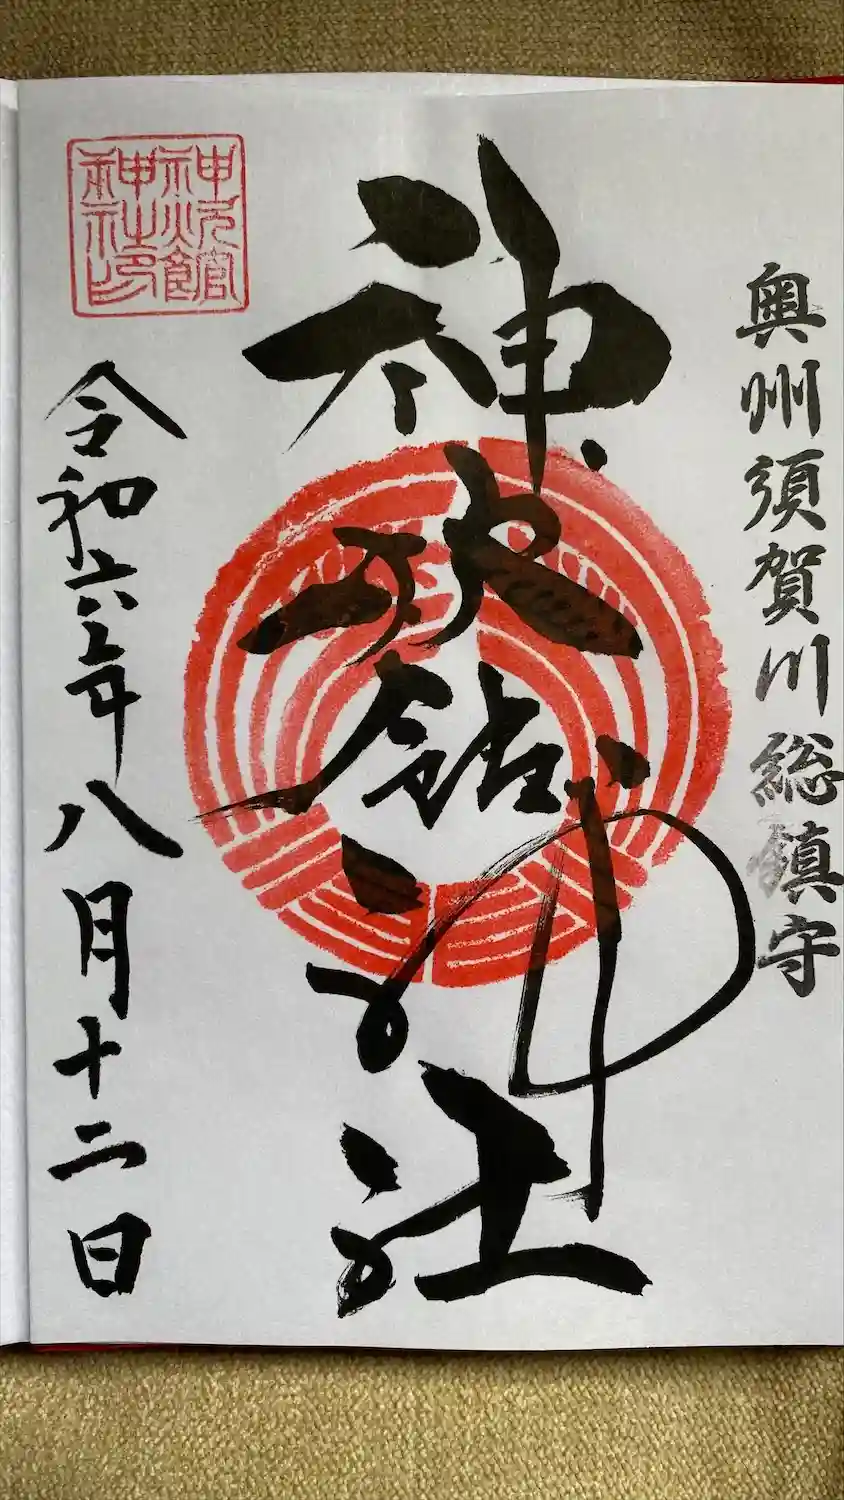 奥州須賀川総鎮守
神炊館神社
神炊館
神社印
令和六年八月十二日